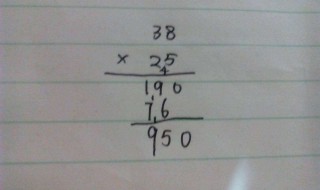 38
× 25
4
190
76
950